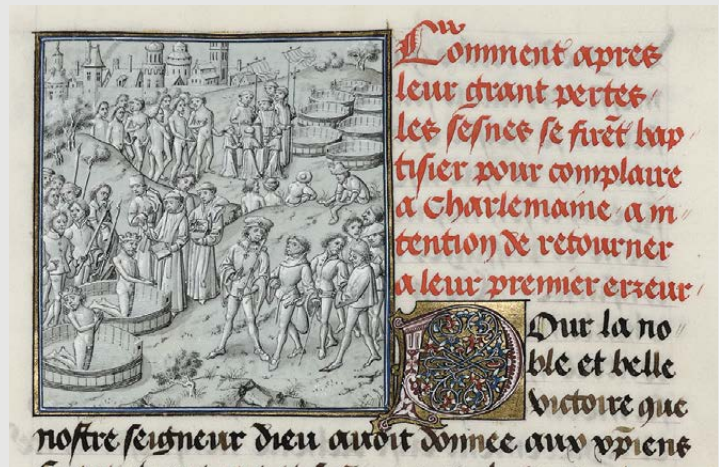 Comment apres
leur grant pertes
les sesnes se firēt bap
tisier pour complaire
a Charlemaine a in
tention de retourner
a leur premier erreur
Pour la no
ble et belle
victoire que
nostre seigneur dieu auoit donnee aux xp̄iens